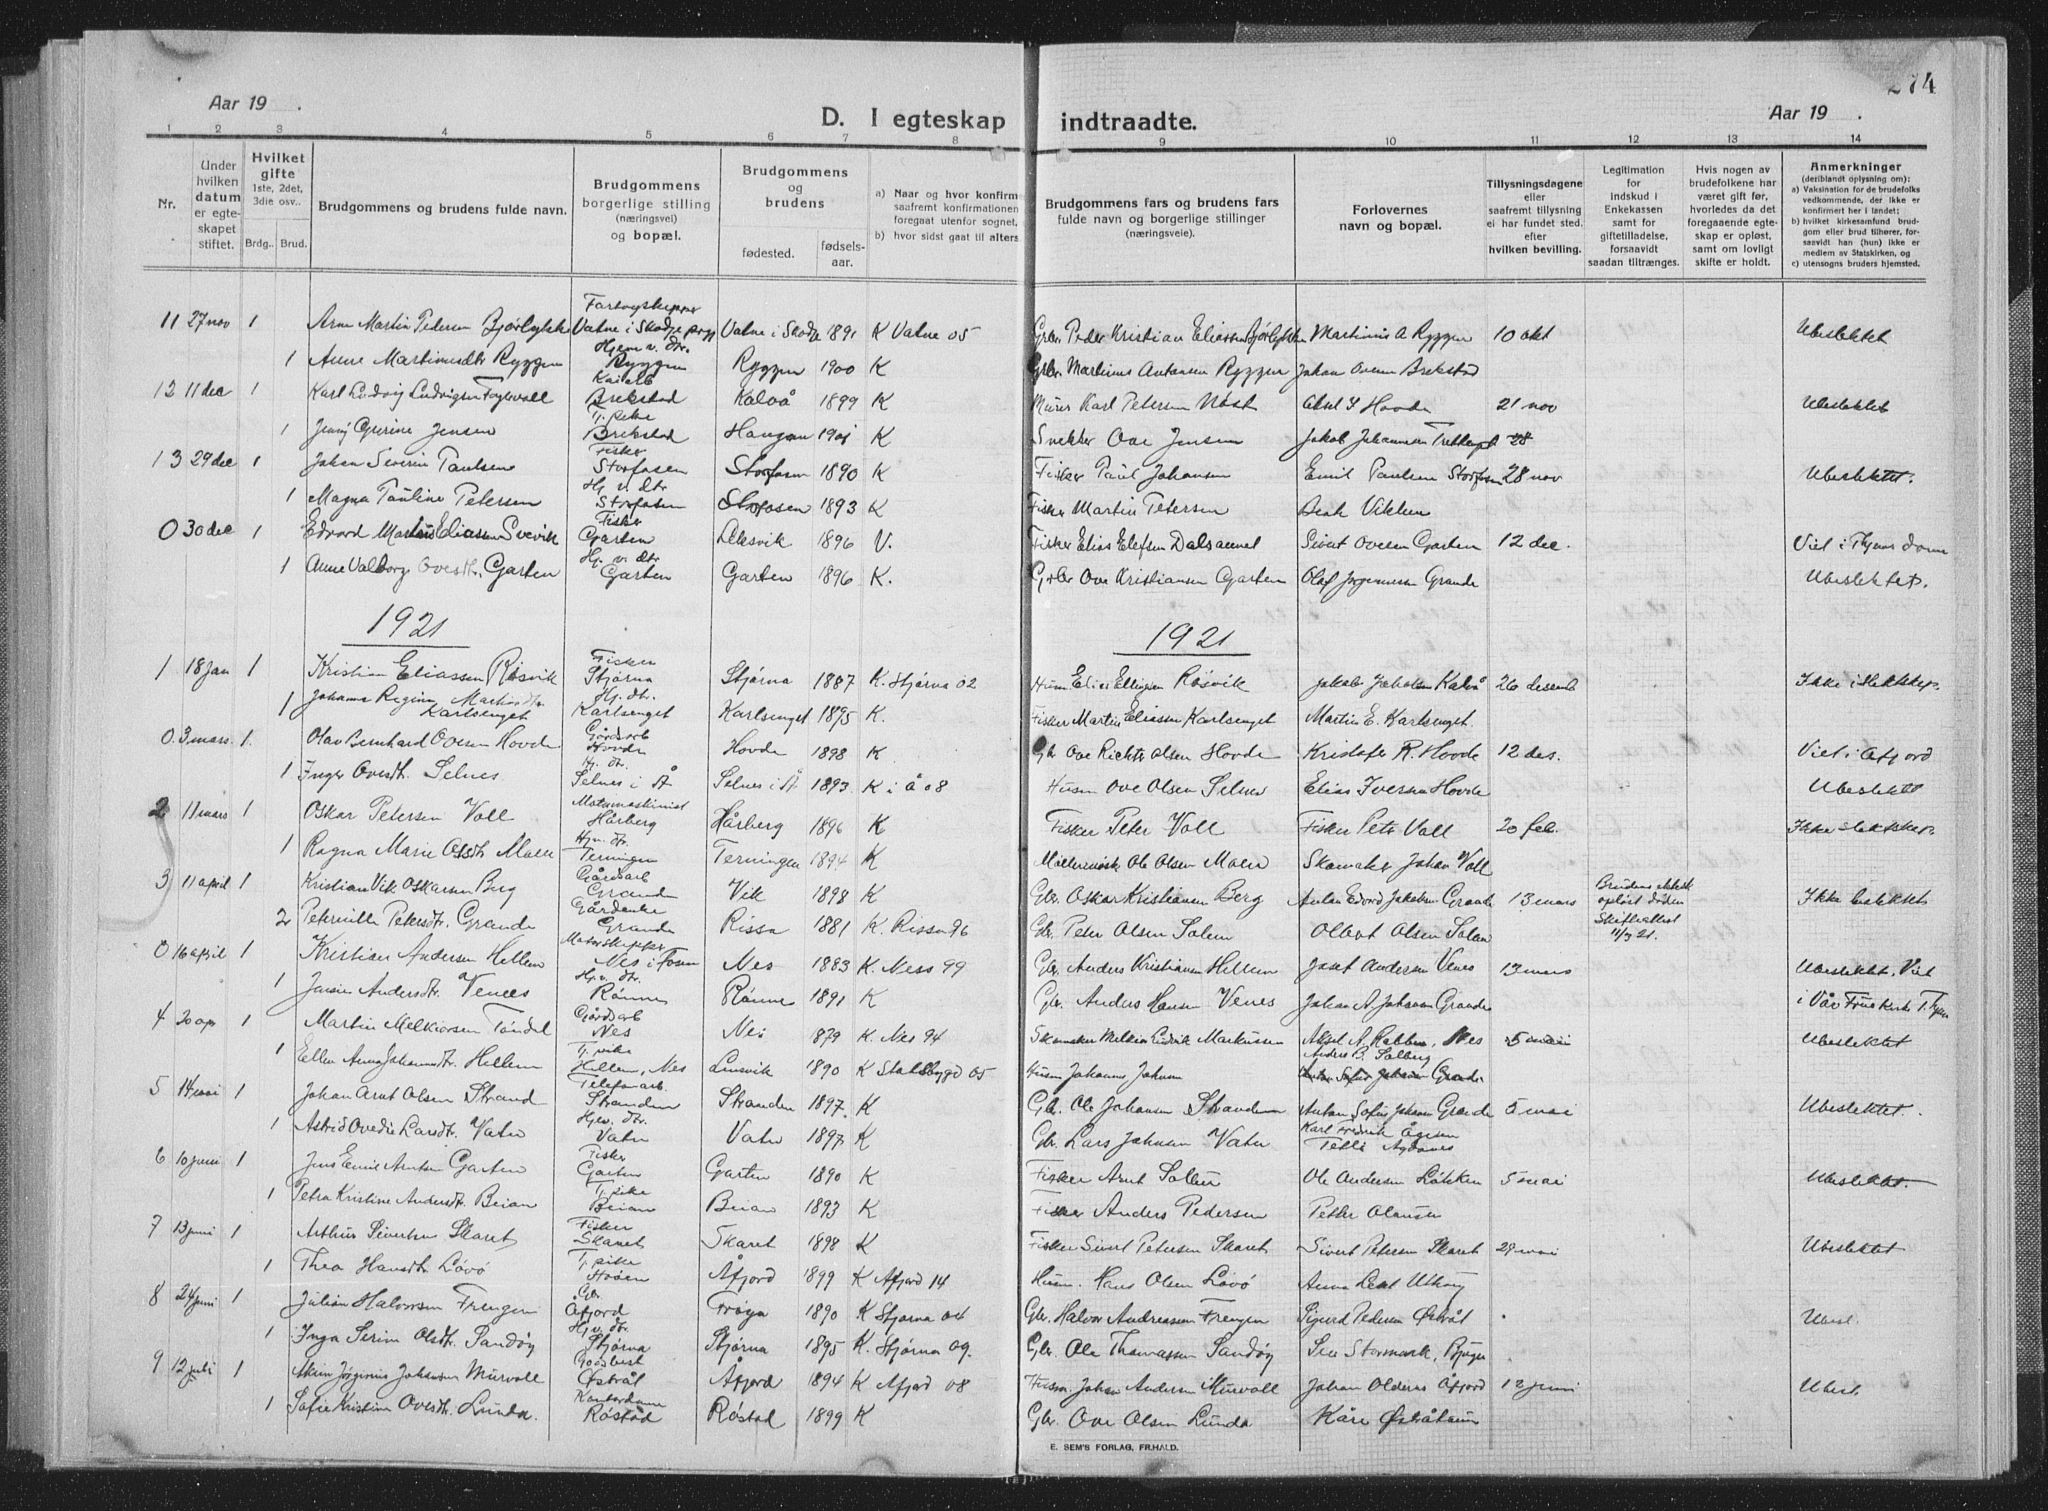 Aar 19 .
D. I egteskap indtraadte.
Aar 19 .
274
1 2 3 4 5 6 7 8 9 10 11 12 13 14
Nr.
Under hvilken datum er egteskapet stiftet.
Hvilket gifte 1ste, 2det, 3die osv..
Brdg.. Brud.
Brudgommens og brudens fulde navn.
Brudgommens borgerlige stilling (næringsvei) og bopæl.
Brudgommens og brudens
fødested. fødselsaar.
a) Naar og hvor konfirm saafremt konfirmationen foregaat utenfor sognet,
b) hvor sidst gaat til alters
Brudgommens fars og brudens fars fulde navn og borgerlige stillinger (næringsveie).
Forlovernes navn og bopæl.
Tillysningsdagene eller saafremt tillysning ei har fundet sted. efter hvilken bevilling.
Legitimation for indskud i Enkekassen samt for giftetilladelse, forsaavidt saadan tiltrænges.
Hvis nogen av brudefolkene har været gift før, hvorledes da det foregaaende egteskap er opløst, samt om lovligt skifte er holdt.
Anmerkninger (deriblandt oplysning om):
a) Vaksination for de brudefolks vedkommende, der ikke er konfirmert her i landet;
b) hvilket kirkesamfund brudgom eller brud tilhører, forsaavidt han (hun) ikke er medlem av Statskirken, og
c) utensogns bruders hjemsted.
11 27 nov 1 Arne Martin Pedersen Bjørlykke Vatne i Skodje Vatne i Skodje 1891 K Vatne 05 Grbr. Peder Kristian Eliassen Bjørlykke Martinus A Ryggen 10 okt Ubeslektet
1 Anne Martinusdtr Ryggen Hjem v. dtr. Ryggen Ryggen 1900 K Grbr. Martinus Antonsen Ryggen Johan Ovesen Brekstad
12 11 dec 1 Karl Ludvig Ludvigsen Brekstad Kalvå 1899 K Murer Karl Petersen Aksel Hovde 21 nov Ubeslektet
1 Jenny Gurine Jensen Tj. pike Brekstad 1901 K Ove Jensen Jakob Johannsen 28
13 29 dec 1 Johan Severin Paulsen Fisker Storfosen Storfosen 1890 K Fisker Paul Johansen Emil Paulsen Storfosen 28 nov Ubeslektet.
1 Magna Pauline Petersen Hj. v. dtr Storfosen Storfosen 1893 K Fisker Martin Petersen
0 30 dec 1 Edvard Eliassen Svevik Fisker Garten 1896 V. Fisker Elias Elefsen Sivert Ovesen Garten 12 dec.
1 Anne Valborg Ovesdtr. Garten Hj. v. dtr Garten Garten 1896 K. Grbr Ove Kristiansen Garten Olaf Jørgensen Grande Ubeslektet.
1921 1921
1 18 jan 1 Kristian Eliassen Røsvik Fisker Stjørna Stjørna 1887 K. Stjørna 02 Husm Elias Ellingsen Røsvik Jakob Kalvå 26 desemb
1 Johanna Regine Martinsdtr Karlsenget Hj. dtr. Karlsenget Karlsenget 1895 K. Fisker Martin Eliassen Karlsenget Martin E. Karlsenget.
0 3 mars. 1. Olav Bernhard Ovesen Hovde Gårdsarb Hovde Hovde 1898 K Gbr Ove Richter Olsen Hovde Kristofer R. Hovde 12 des. Viet i Åfjord
1 Inger Ovesdtr. Selnes Hj. dtr. Selnes i Å Selnes i Å 1893 K i Å 08 Husm Ove Olsen Selnes Elias Iversen Hovde Ubeslektet
2 11 mars 1 Oskar Petersen Voll Hårberg Hårberg 1896 K Fisker Peter Voll Fisker Peter Voll 20 feb.
1 Ragna Marie Olsdtr Moen Hj. v. dtr. Terningen Terningen 1894 K Ole Olsen Moen Skomaker Johan Voll
3 11 april 1 Kristian Vik Oskarsen Berg Gårdsarb Grande Vik 1898 K Gbr. Oskar Kristiansen Berg Anton Edvard Jakobsen Grande 13 mars Brudens ektesk opløst v døden Skifteattest 11/3 21. Ikke beslektet
2 Petersdtr. Grande Grande Rissa 1881 K. Rissa 96 Gbr. Peter Olsen Solem Olsen Solem
0 16 april 1 Kristian Andersen Hellem Nes 1883 K. Ness 99 Gbr. Anders Kristiansen Hellem Andersen Venes 13 mars Ubeslektet. Viet
1 Andersdtr. Venes Hj. v. dtr. Rønne Rønne 1891 K Gbr. Anders Hansen Venes Johan A. Johansen Grande i Vår Frue kirke
4 20 apr 1 Martin Melkiorsen Gårdsarb Nes Nes 1879 K. Nes 94 Skomaker Markussen Nes 5 mai Ubeslektet
1 Ellen Anna Johannsdtr. Hellem Tj. pike Hellem, Nes 1890 K Stadsbygd 05 Husm Johannes Johnsen Anders B. Solberg
5 14 mai 1 Johan Arnt Olsen Strand Telefonarb Stranden Stranden 1897. K Gbr. Ole Johansen Stranden Anton Sofus Johansen Grande 5 mai Ubeslektet.
1 Astrid Ovedie Larsdtr. Vatn Hj. v. dtr. Vatn Vatn 1897. K Gbr. Lars Johnsen Vatn Karl Fredrik
6 10 juni 1 Jens Emil Arntsen Garten Fisker Garten Garten 1890 K Fisker Arnt Ole Andersen Løkken 5 mai Ubeslektet.
1 Petra Kristine Andersdtr. Beian Tj. pike Beian Beian 1893 K Fisker Anders Pedersen Petter Olausen
7 13 juni 1 Arthur Sivertsen Skaret Fisker Skaret Skaret 1898 K Fisker Sivert Petersen Skaret Sivert Petersen Skaret 29 mai Ubeslektet
1 Thea Hansdtr. Løvø Tj. pike Åfjord 1899 K Åfjord 14 Husm. Hans Olsen Løvø
8 24 juni 1 Julian Halvorsen Frengen Gbr Åfjord Frøya 1890 K Stjørna 04 Gbr. Halvor Andreassen Frengen Sigurd Pedersen Østråt Ubesl.
1 Inga Serine Olsdtr. Sandøy Hj. v. dtr. Stjørna Stjørna 1895 K. Stjørna 09. Gbr. Ole Thomassen Sandøy
9 12 juli 1 Johansen Murvoll Østråt Åfjord 1894 K Åfjord 08 Husm. Johan Andersen Murvoll Johan Åfjord 12 juni Ubesl.
1 Sofie Kristine Ovesdtr. Lunde. Røstad Røstad 1899 K Gbr Ove Olsen Lunde Kåre
E. SEM'S FORLAG, FR.HALD.